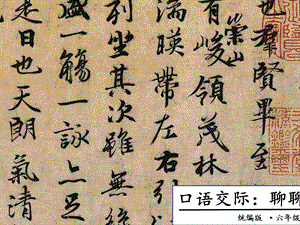 也羣賢畢至
有崇山峻領茂林
湍暎帶左右引
列坐其次雖無絲
盛一觴一詠亦足
是日也天朗氣清
口语交际：聊聊
统编版·六年级